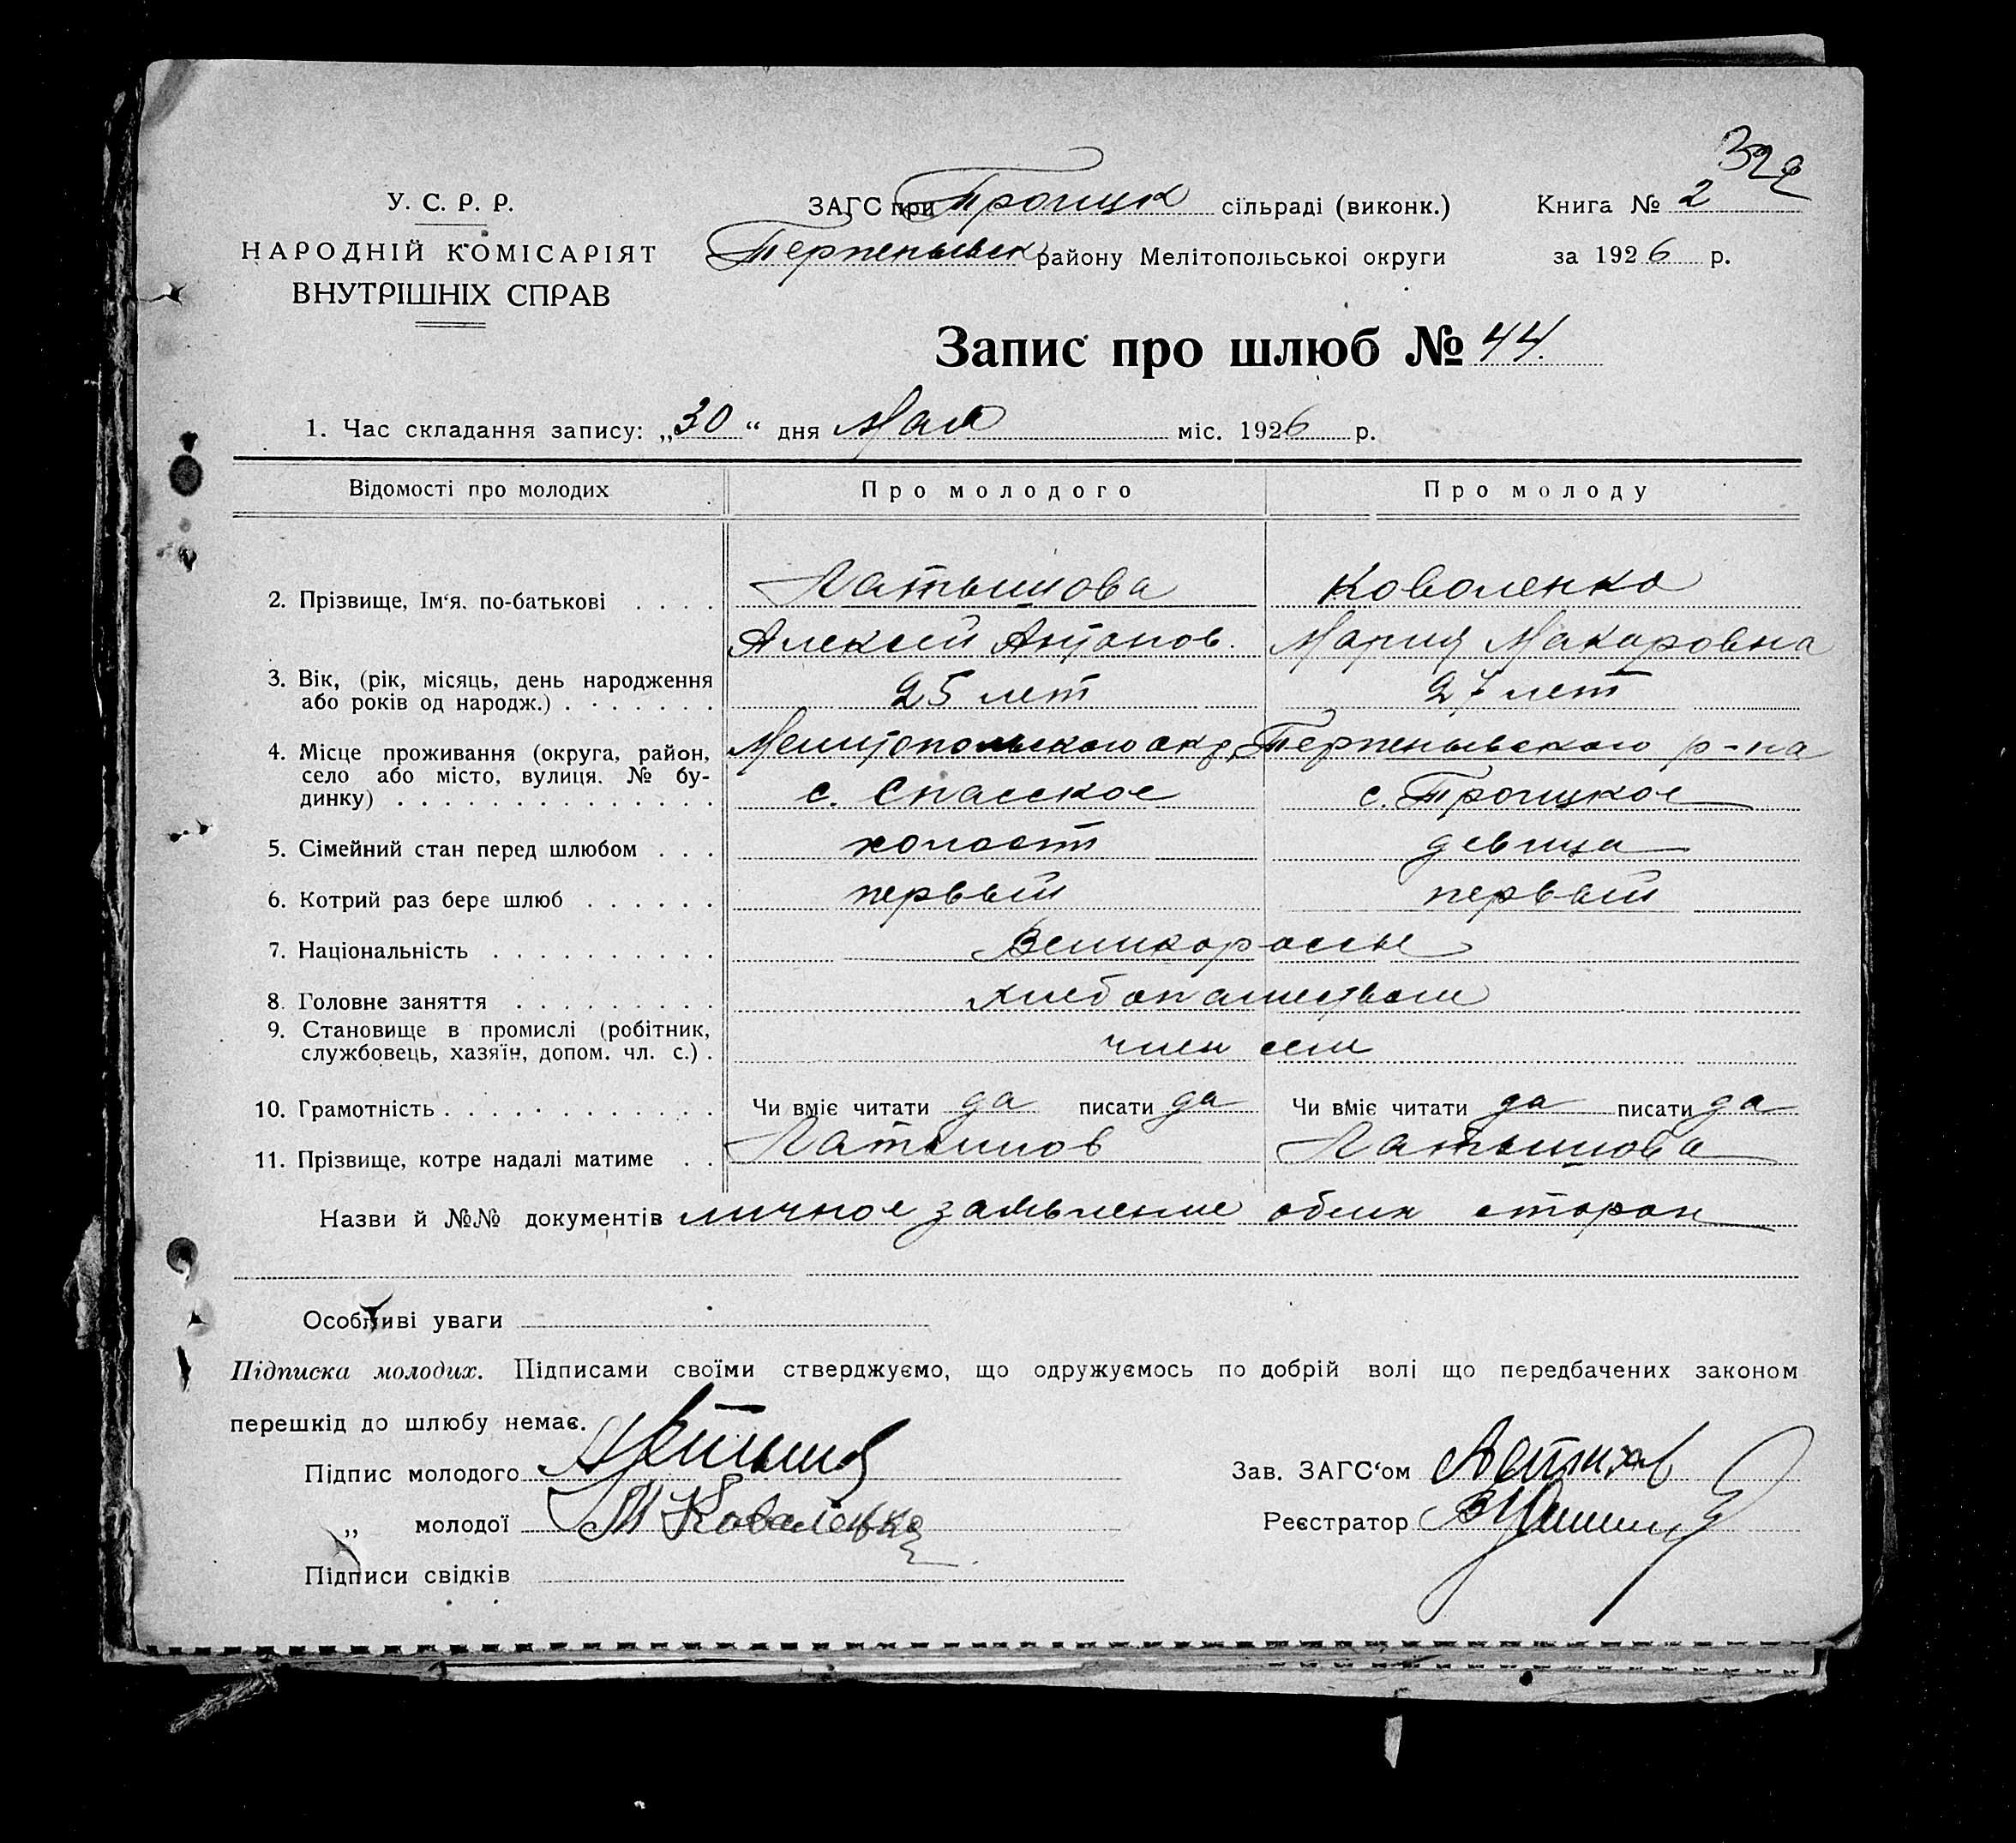 322
У. С. Р. Р.
НАРОДНІЙ КОМІСАРІЯТ
ВНУТРІШНІХ СПРАВ
ЗАГС при Троицк сільраді (виконк.)
Терпеньевск району Мелітопольської округи
Книга № 2
за 1926 р.
Запис про шлюб № 44.
1. Час складання запису: „30“ дня Мая міс. 1926 р.
Відомості про молодих Про молодого Про молоду
2. Прізвище, Ім‘я. по-батькові . . . . Латышова Коваленко
Алексей Антонов. Мария Макаровна
3. Вік, (рік, місяць, день народження
або років од народж.) . . . . . . . 25 лет 27 лет
4. Місце проживання (округа, район,
село або місто, вулиця. № бу-
динку) . . . . . . . . . . . . . .
Мелитопольского окр. Терпеньевского р-на
с. Спасское с. Троицкое
5. Сімейний стан перед шлюбом . . . холост девица
6. Котрий раз бере шлюб . . . . . . первый первый
7. Національність . . . . . . . . . . Великороссы
8. Головне заняття . . . . . . . . . хлебопашеством
9. Становище в промислі (робітник,
службовець, хазяїн, допом. чл. с.) . член сем
10. Грамотність . . . . . . . . . . . . Чи вміє читати да писати да Чи вміє читати да писати да
11. Прізвище, котре надалі матиме . . Латышов Латышова
Назви й №№ документів личное заявление обеих сторон
Особливі уваги
Підписка молодих. Підписами своїми стверджуємо, що одружуємось по добрій волі що передбачених законом
перешкід до шлюбу немає.
Підпис молодого
„ молодої М Коваленко
Підписи свідків
Зав. ЗАГС‘ом
Реєстратор